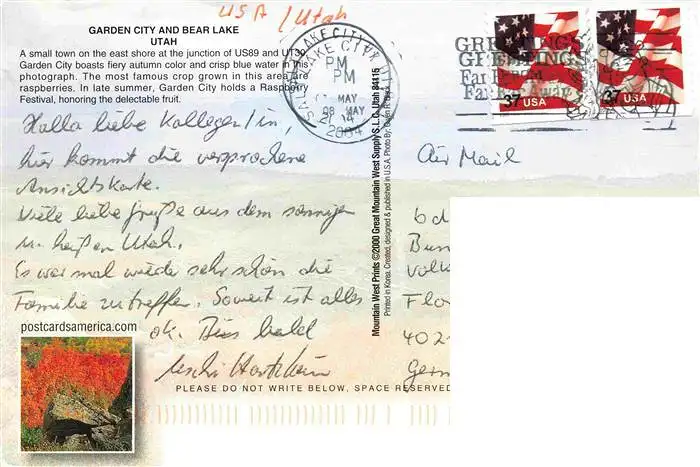 USA / Utah
GARDEN CITY AND BEAR LAKE
UTAH
A small town on the east shore at the junction of US89 and UT30,
Garden City boasts fiery autumn color and crisp blue water in this
photograph. The most famous crop grown in this area are
raspberries. In late summer, Garden City holds a Raspberry
Festival, honoring the delectable fruit.
SALT LAKE CITY
PM
PM
MAY
08 MAY
2004
GREETINGS
GREETINGS
Far
Far Away
37 USA
37 USA
Hallo liebe Kollegen/in,
hier kommt die versprochene
Ansichtskarte.
Viele liebe Grüße aus dem sonnigen
u. heißen Utah.
Es war mal wieder sehr schön die
Familie zu treffen. Soweit ist alles
ok. Bis bald
Air Mail
Bun
Volk
Flo
402
Germ
Mountain West Prints ©2000 Great Mountain West Supply S.L.C. Utah 84115
Printed in Korea. Created, designed & published in U.S.A. Photo By:
postcardsamerica.com
PLEASE DO NOT WRITE BELOW, SPACE RESERVED